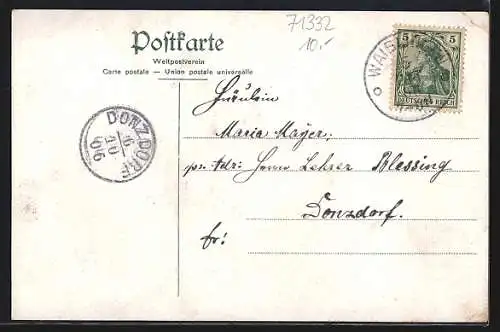 71332
10.-
Postkarte
Weltpostverein
Carte postale — Union postale universelle
5 5
DEUTSCHES REICH
WAIS
DONZDORF
6
10
06
Fräulein
Maria Mayer,
pr. Adr: Herrn Lehrer Blessing
Donzdorf.
fr: